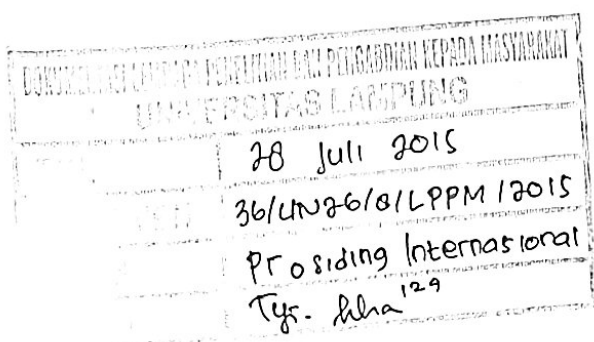 DOKUMENTASI LEMBAGA PENELITIAN DAN PENGABDIAN KEPADA MASYARAKAT
UNIVERSITAS LAMPUNG
28 Juli 2015
36/UN26/8/LPPM/2015
Prosiding Internasional